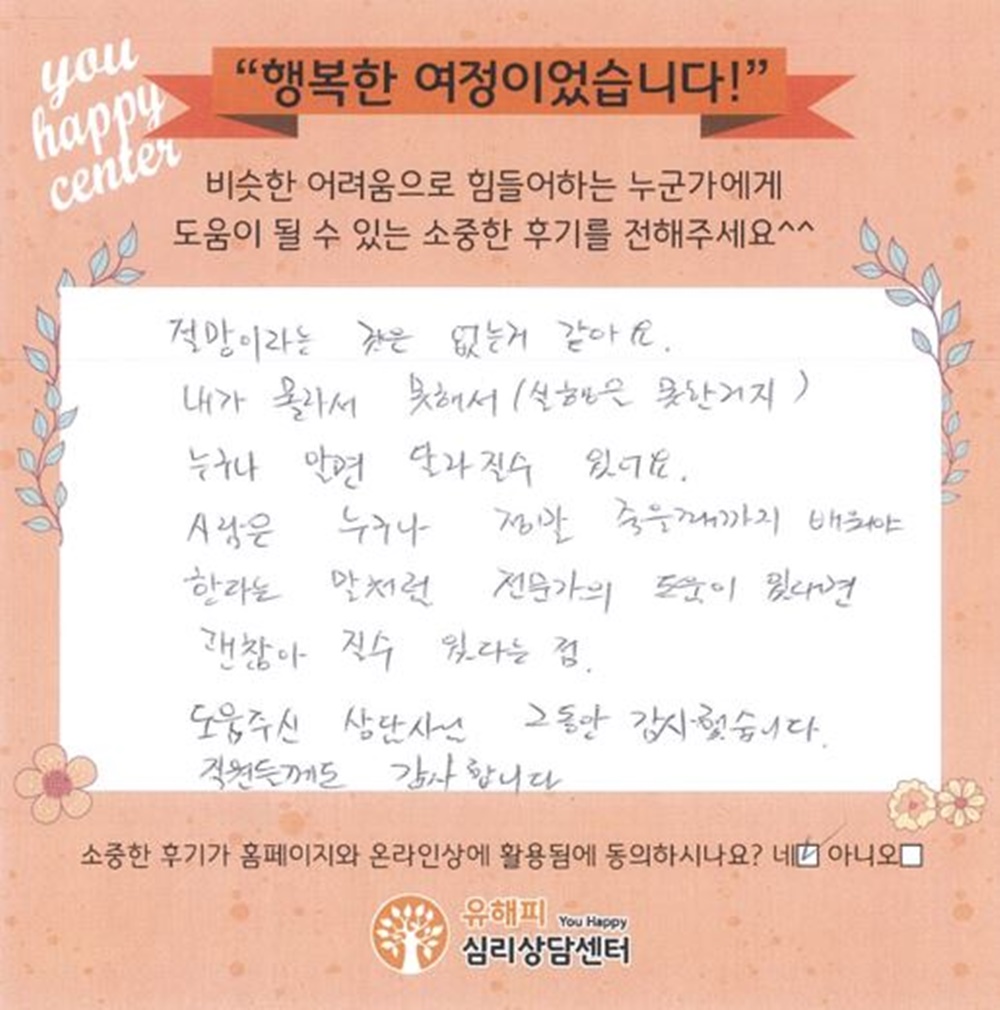 you
happy
center
“행복한 여정이었습니다!”
비슷한 어려움으로 힘들어하는 누군가에게
도움이 될 수 있는 소중한 후기를 전해주세요^^
절망이라는 것은 없는거 같아요.
내가 몰라서 못해서 (실행은 못한거지)
누구나 알면 달라질수 있어요.
사람은 누구나 정말 죽을때까지 배워야
한다는 말처럼 전문가의 도움이 있다면
괜찮아 질수 있다는 점.
도움주신 상담사님 그동안 감사했습니다.
직원들께도 감사합니다
소중한 후기가 홈페이지와 온라인상에 활용됨에 동의하시나요? 네☑ 아니오☐
유해피 You Happy
심리상담센터